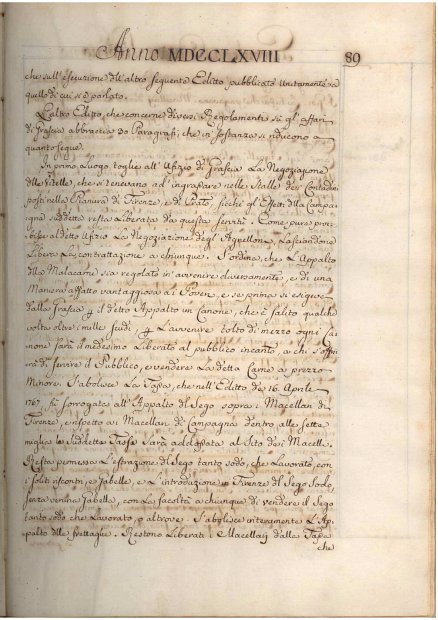 Anno MDCCLXVIII 89
che sull'esecuzione dell'altro seguente Editto pubblicato unitamente a
quello di cui si è parlato.
L'altro Editto, che concerne diversi Regolamenti su gli affari
di Grascia abbraccia 20 Paragrafi, che in sostanza si riducono a
quanto segue.
In primo luogo toglie all'Ufizio di Grascia La Negoziazione
delle Vitelle, che si tenevano ad ingrassare nelle Stalle dei Contadini
posti nella Pianura di Firenze, e di Prato, sicchè gl'Effetti della Campa-
gna suddetta resta Liberata da questa servitù. Come pure proi-
bisce al detto Ufizio La Negoziazione degl'Agnelloni, Lasciandone
Libera La contrattazione a chiunque. S'ordina, che L'Appalto
della Malacarne sia regolato in avvenire diversamente, e di una
Maniera affatto vantaggiosa ai Poveri, e se prima si esigeva
dalla Grascia p il detto Appalto un Canone, che è salito qualche
volta oltre i mille scudi, p L'avvenire tolto di mezzo ogni Ca-
none sarà il medesimo Liberato al pubblico incanto, a chi s'offeri-
rà di servire il Pubblico, e vendere La detta Carne a prezzo
Minore. S'abolisce La Tassa, che nell'Editto de 16. Aprile
1767. fu surrogata all'Appalto di Sego sopra i Macellari di
Firenze, e rispetto ai Macellari di Campagna dentro alle sette
miglia la suddetta Tassa sarà addossata al Sito dei Macelli.
Resta permessa L'estrazione di Sego tanto sodo, che Lavorato, con
i soliti riscontri, e Gabelle, e L'introduzione in Firenze del Sego Sodo,
senza veruna Gabella, con La facoltà a chiunque di vendere il Sego
tanto sodo che Lavorato, o altrove. S'abolisce interamente L'Ap-
palto delle frattaglie. Restono Liberati i Macellari dalle Tasse
che